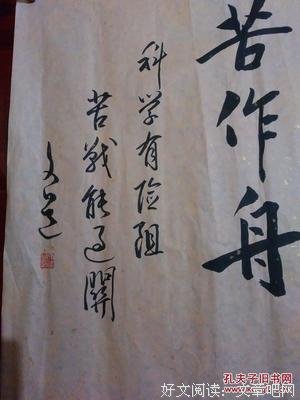 苦作舟
科学有险阻
苦战能过関
好文阅读：文章吧网
孔夫子旧书网